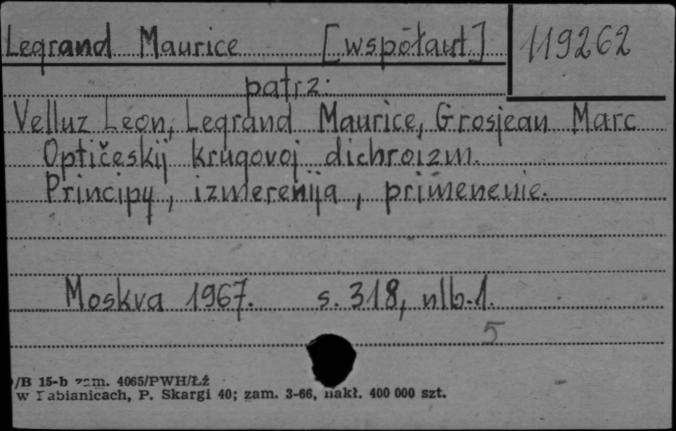 Legrand Maurice [współaut] 119262
patrz:
Velluz Leon, Legrand Maurice, Grosjean Marc
Optičeskij krugovoj dichroizm.
Principy, izmerenija, primenenie.
Moskva 1967. s. 318, nlb. 1.
5
/B 15-b zam. 4065/PWH/Łź
w Pabianicach, P. Skargi 40; zam. 3-66, nakł. 400 000 szt.